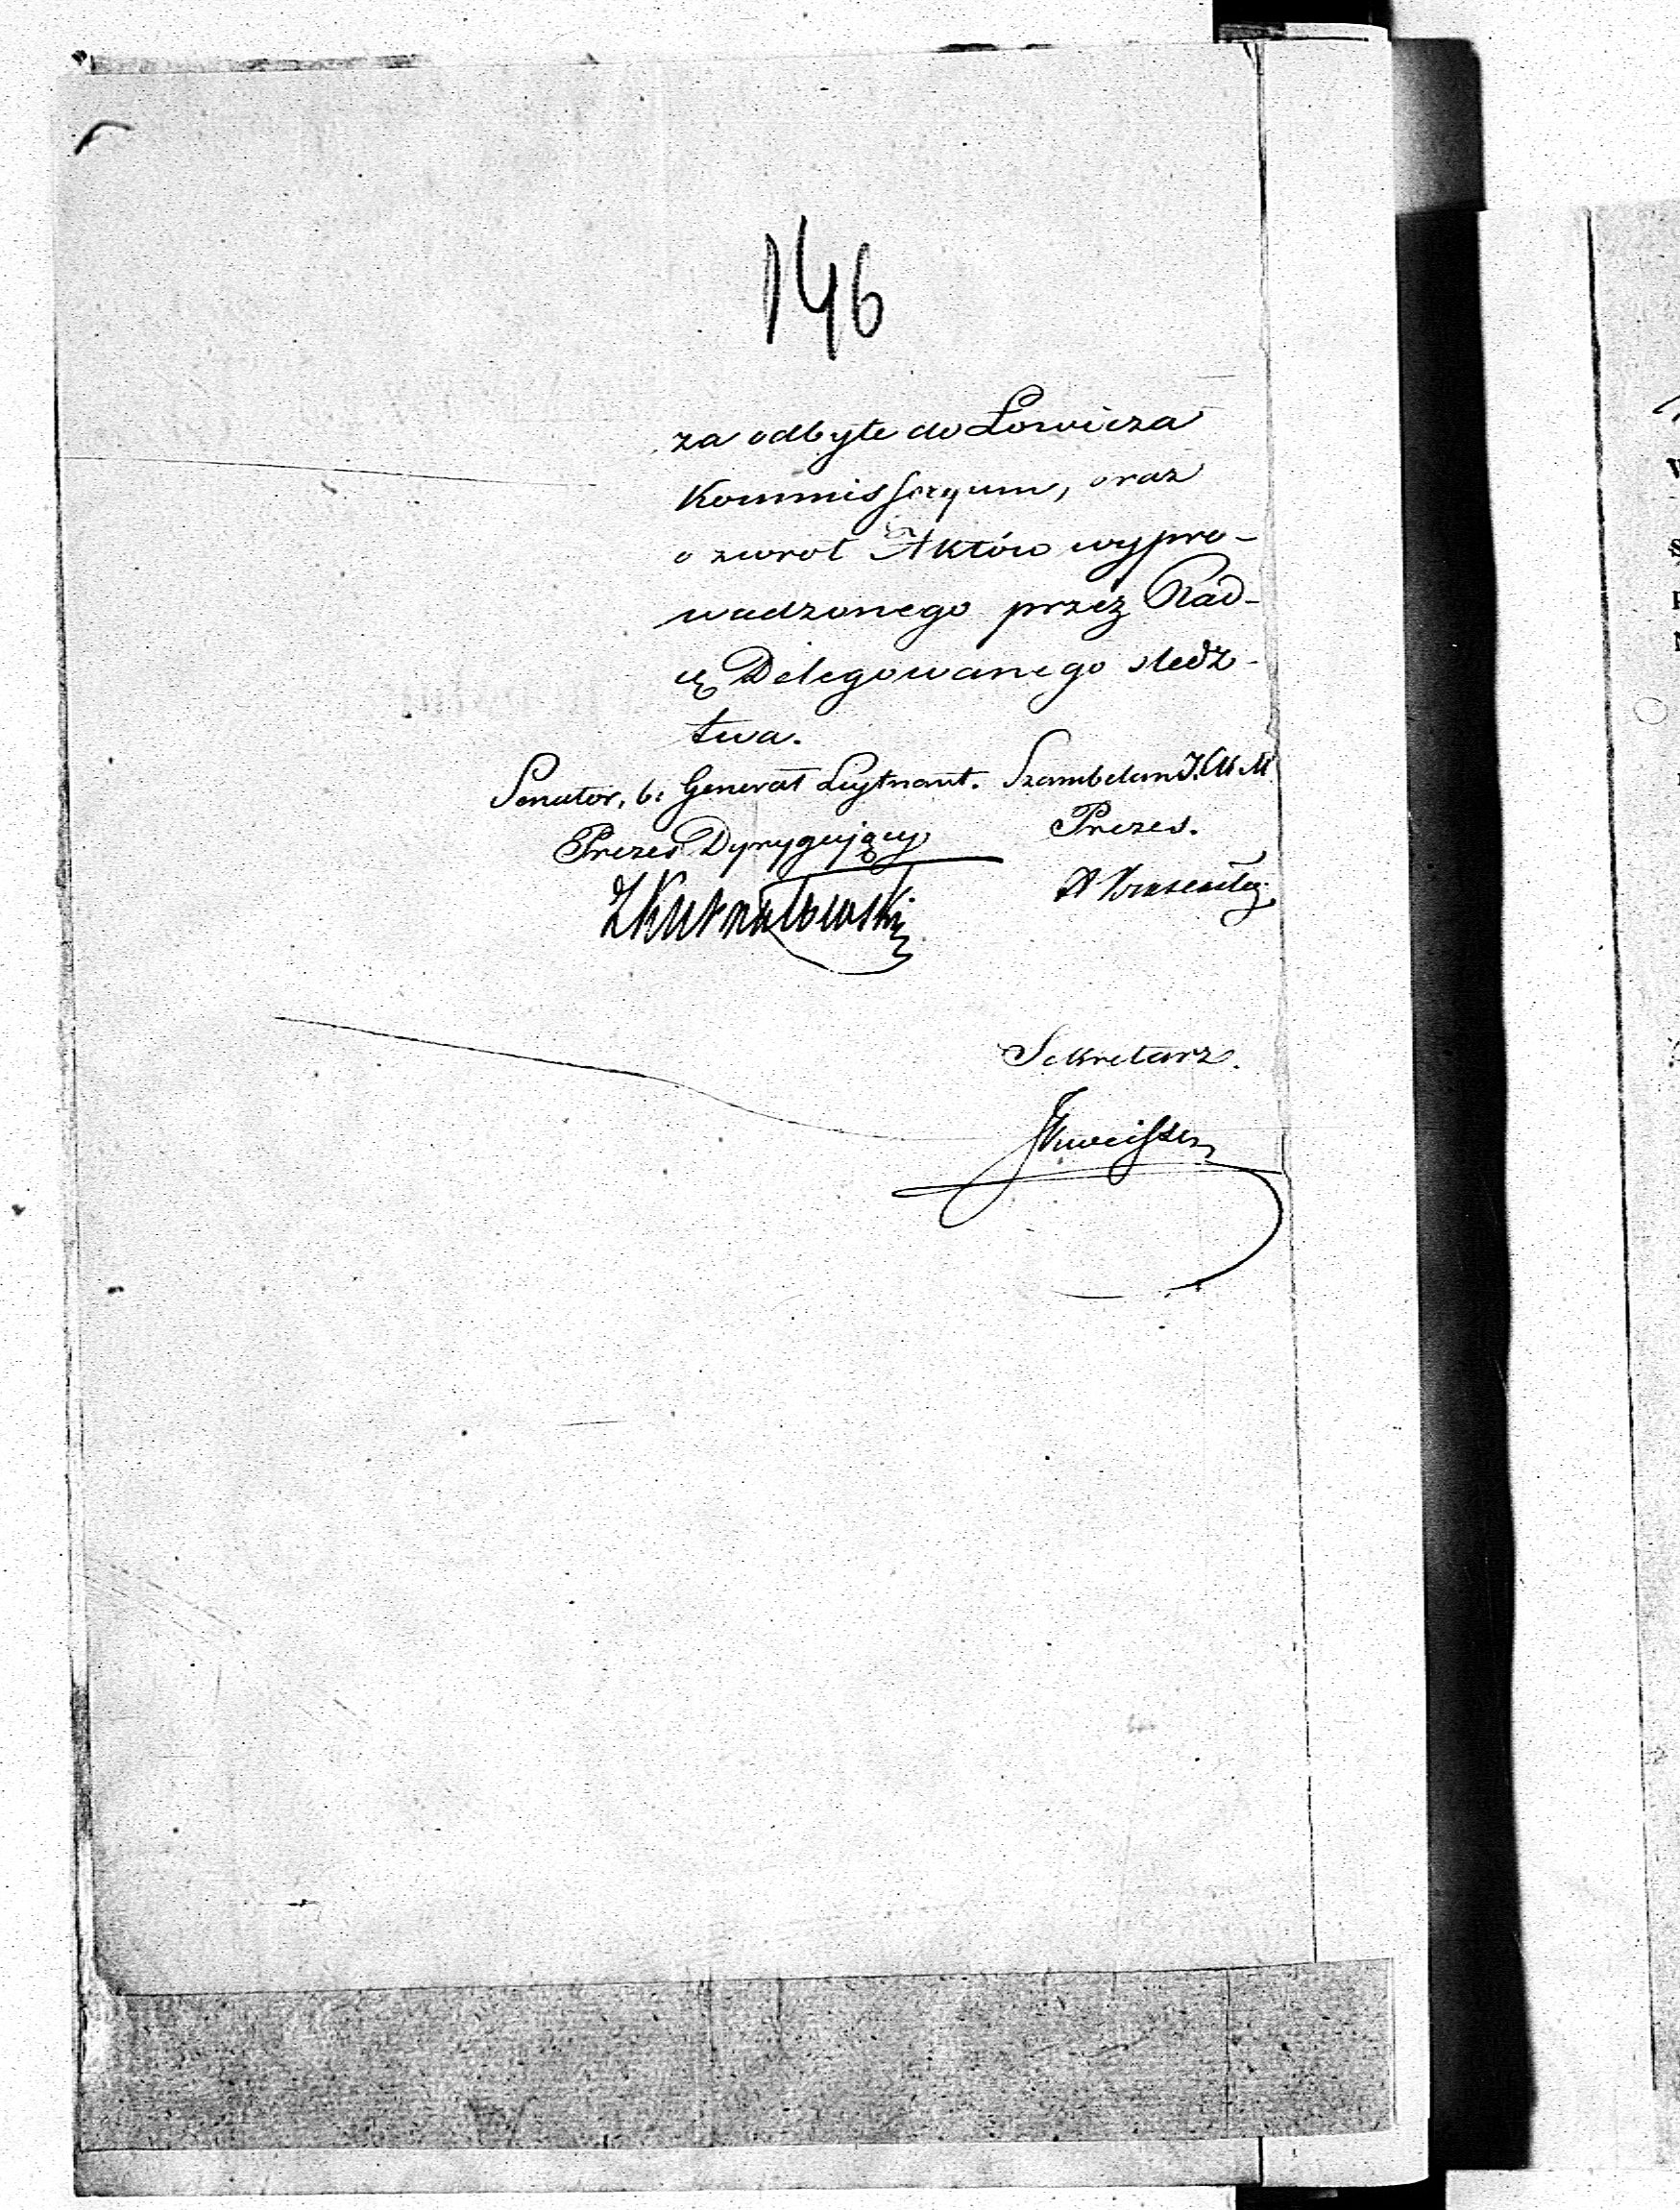 146
za odbyte do Łowicza
Kommissoryum, oraz
o zwrot Aktów wypro-
wadzonego przez Rad-
cę Delegowanego sledz-
twa.
Senator, b: Generał Leytnant. Szambelan J.K.M.
Prezes Dyrygujący Prezes.
Sekretarz.